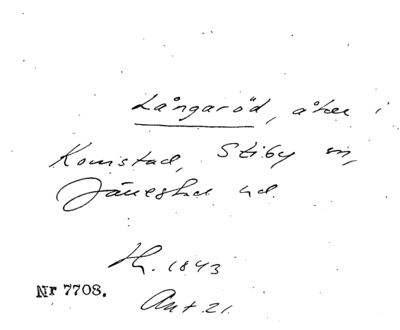 Långaröd, åker i
Komstad, Stiby sn,
Järrestad hd.
Hs. 1843
Nr 7708.
Ant 21.